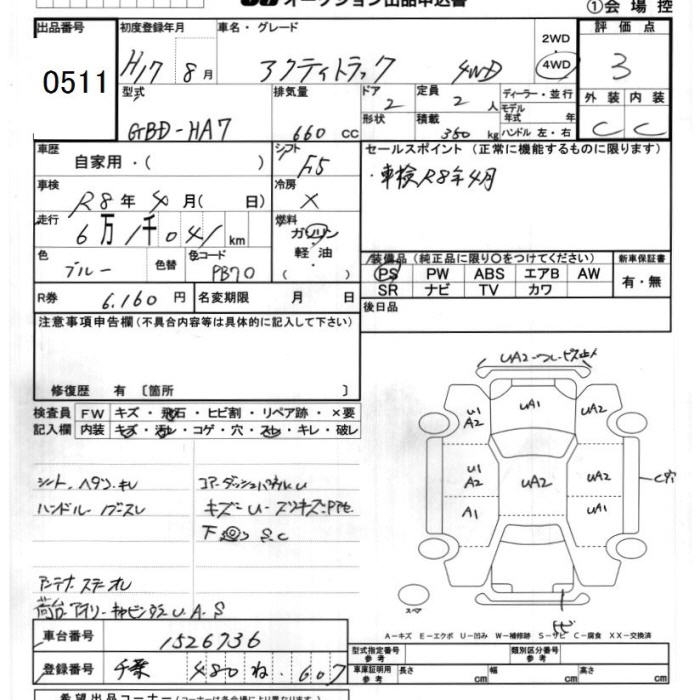 オークション出品申込書
①会場控
出品番号
0511
初度登録年月
H17 8月
車名・グレード
アクティトラック 4WD
2WD・4WD
評価点
3
外装 内装
C C
型式
GBD-HA7
排気量
660 CC
ドア
2
形状
定員
2 人
積載
350 kg
ディーラー・並行
モデル年式 年式
ハンドル 左・右
車歴
自家用・( )
シフト
F5
車検
R8年4月( 日)
冷房
×
走行
6万1千041km
燃料
ガソリン
軽油
( )
色
ブルー
色替
色コード
PB70
R券
6,160円
名変期限 月 日
セールスポイント (正常に機能するものに限ります)
・車検R8年4月
装備品 (純正品に限り〇をつけてください)
PS PW ABS エアB AW
SR ナビ TV カワ
新車保証書
有・無
後日品
注意事項申告欄 (不具合内容等は具体的に記入して下さい)
修復歴 有 〔箇所 〕
検査員記入欄
FW キズ・飛石・ヒビ割・リペア跡・×要
内装 キズ・汚れ・コゲ・穴・スレ・キレ・破レ
シート ヘタリ、キレ
ハンドル
コアー、ダッシュパネルU
下回 S.C
アンテナ
荷台アオリ U.A.S
UA2
U1 A2
UA1
UA2
U1 A2
UA2
UA2
A1
UA1
C穴
スペア
A-キズ E-エクボ U-凹み W-補修跡 S-サビ C-腐食 XX-交換済
車台番号
1526736
登録番号
千葉 480 ね 607
型式指定番号 参考
類別区分番号 参考
車庫証明用 参考 長さ cm 幅 cm 高さ cm
希望出品コーナー